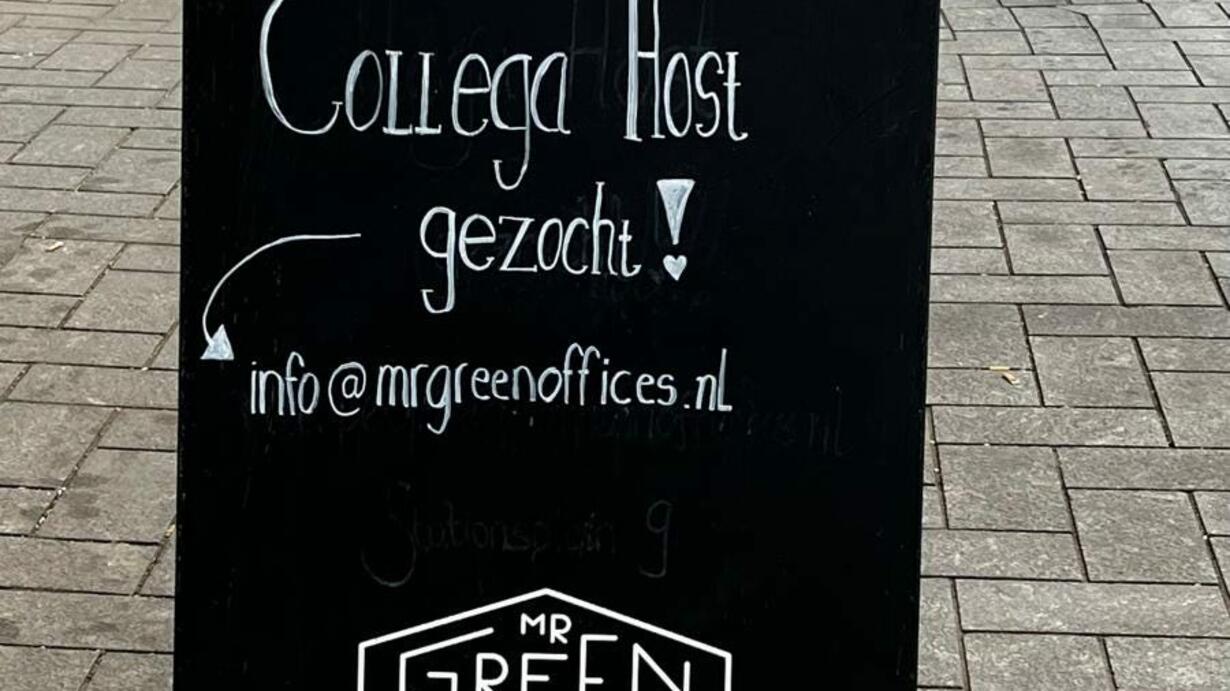 Collega Host
gezocht!
info@mrgreenoffices.nl
MR
GREEN